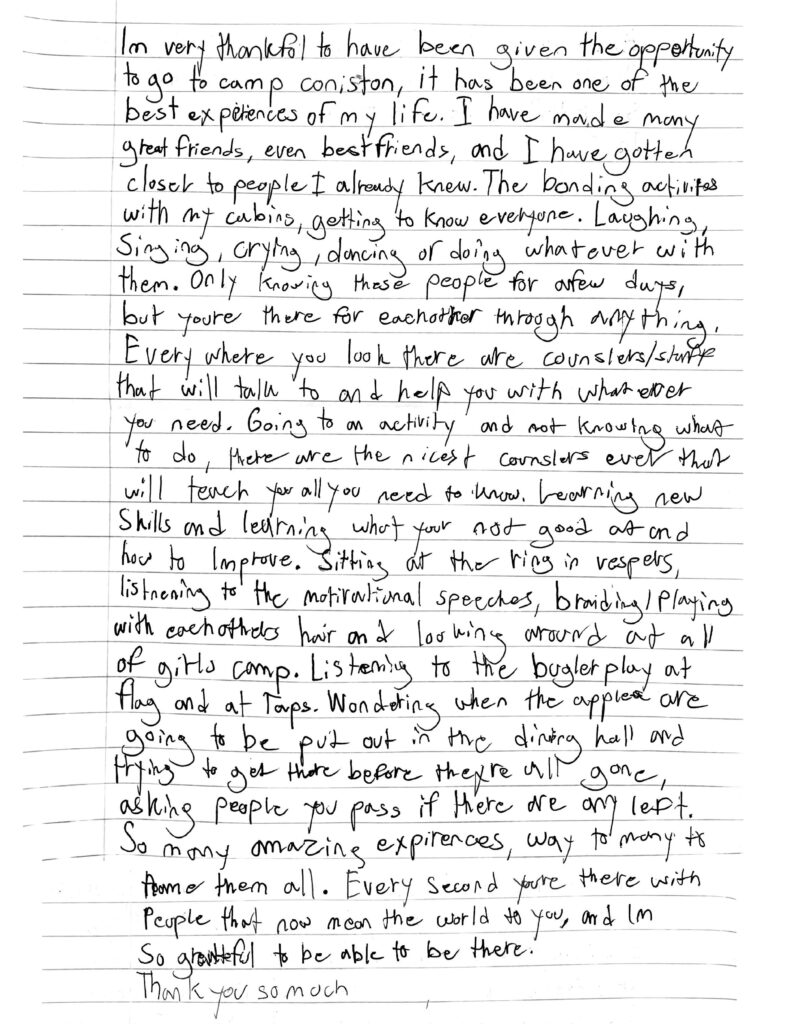 Im very thankful to have been given the opportunity
to go to camp coniston, it has been one of the
best expiriences of my life. I have made many
great friends, even best friends, and I have gotten
closer to people I already knew. The bonding activites
with my cabins, getting to know everyone. Laughing,
Singing, crying, dancing or doing whatever with
them. Only knowing these people for a few days,
but youre there for eachother through anything.
Every where you look there are counslers/staff
that will talk to and help you with what ever
you need. Going to an activity and not knowing what
to do, there are the nicest counslers ever that
will teach you all you need to know. Learning new
Skills and learning what your not good at and
how to Improve. Sitting at the ring in vespers,
listnening to the motivational speeches, braiding/playing
with eachothers hair and looking around at all
of girls camp. Listening to the bugler play at
flag and at Taps. Wondering when the apples are
going to be put out in the dining hall and
trying to get there before theyre all gone,
asking people you pass if there are any left.
So many amazing expirences, way to many to
name them all. Every second youre there with
People that now mean the world to you, and Im
So grateful to be able to be there.
Thank you so much